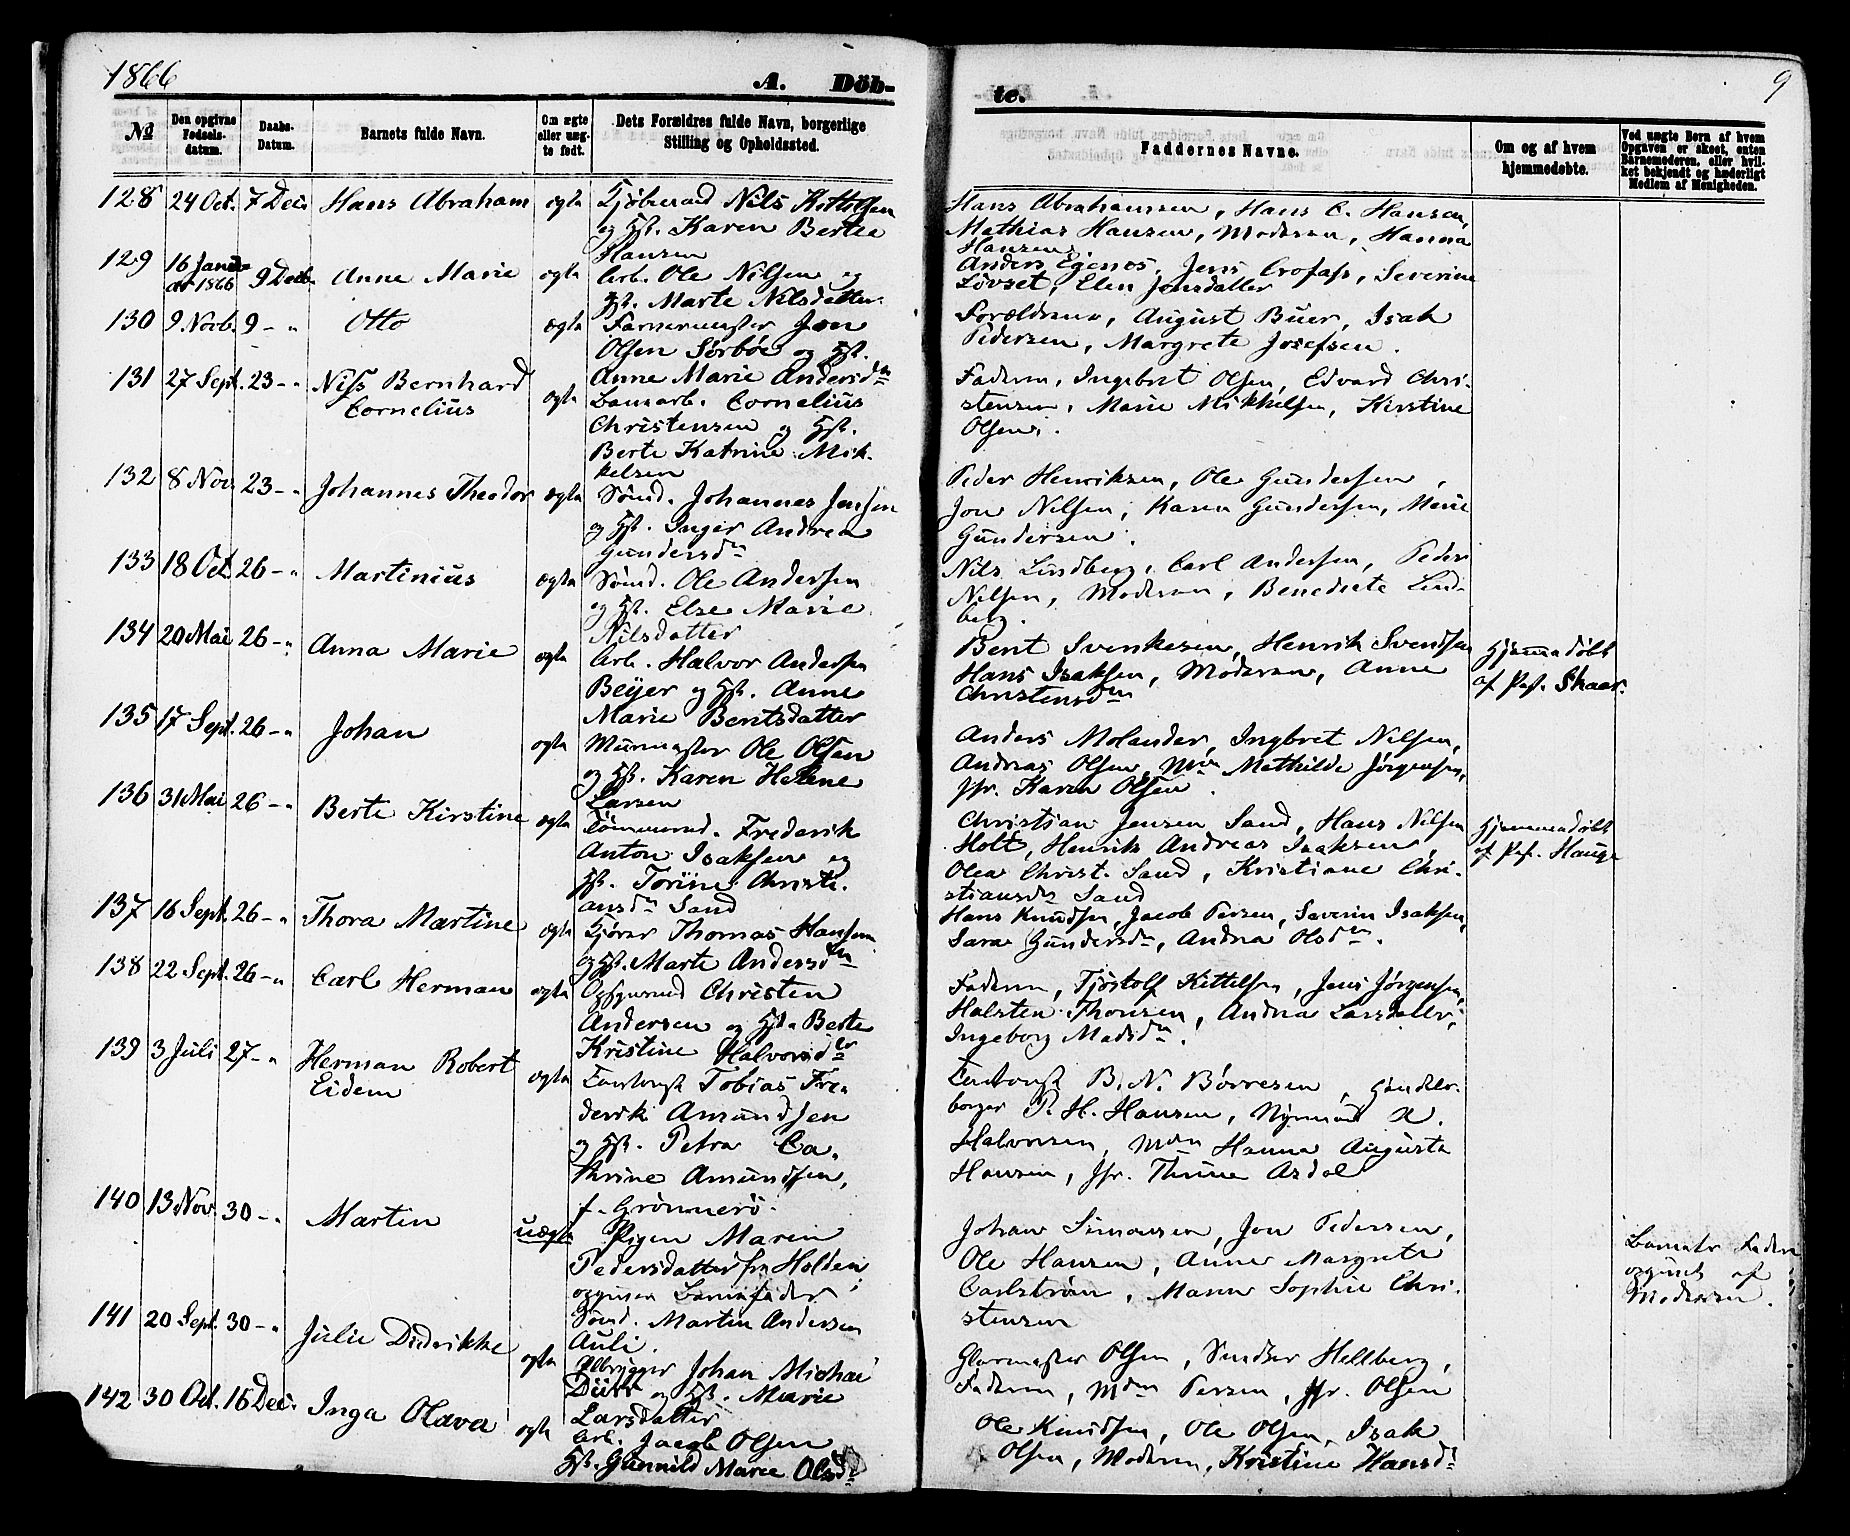 1866
A. Döb-
te.
9
No
Den opgivne Fødsels-datum.
Daabs-Datum.
Barnets fulde Navn.
Om ægte eller uæg-te født.
Dets Forældres fulde Navn, borgerlige Stilling og Opholdssted.
Faddernes Navne.
Om og af hvem hjemmedøbte.
Ved uægte Børn af hvem Opgaven er skeet, enten Barnemoderen, eller hvil-ket bekjendt og hæderligt Medlem af Menigheden.
128 24 Oct. 7 Dec. Hans Abraham ægte
Kjøbmand Nils Kittelsen
og Hst. Karen Bertea
Hansen
Hans Abrahamsen, Hans C. Hansen,
Mathias Hansen, Moderen, Hanna
Hansen
129 16 Janu-ar 1866 9 Decb. Anne Marie ægte
Arb. Ole Nilsen og
Hst. Marte Nilsdatter
Anders Egenes, Jens Crofass, Severine
Løvset, Elen Jensdatter
130 9 Novb. 9 - " Otto ægte
Farvermester Jon
Olsen Sørbøe og Hst.
Anne Marie Andersdn
Forældrene, August Buer, Isak
Pedersen, Margrete Josefsen.
131 27 Sept. 23 - " Niss Bernhard
Cornelius ægte
Banearb. Cornelius
Christensen og Hst.
Berte Katrine Mik-
kelsen
Faderen, Ingebret Olsen, Edvard Chri-
stensen, Marie Mikkelsen, Kirstine
Olsen.
132 8 Nov. 23 - " Johannes Theodor ægte
Sømd. Johannes Jensen
og Hst. Inger Andrea
Gundersdn
Peder Henriksen, Ole Gundersen,
Jon Nilsen, Karen Gundersen, Marie
Gundersen.
133 18 Oct. 26 - " Martinius ægte
Sømd. Ole Andersen
og Hst. Else Marie
Nilsdatter
Nils Lindberg, Carl Andersen, Peder
Nilsen, Moderen, Benedicte Lind-
berg.
134 20 Mai 26 - " Anna Marie ægte
Arb. Halvor Andersen
Beyer og Hst. Anne
Marie Bentsdatter
Bent Svenkesen, Henrik Svendsen
Hans Isaksen, Moderen, Anne
Christensdn
Hjemmedøbt
af Pst. Skaar.
135 17 Sept. 26 - " Johan ægte
Murmester Ole Olsen
og Hst. Karen Helene
Larsen
Anders Molander, Ingbret Nilsen,
Andreas Olsen, Mdn Mathilde Jørgensen,
Jfr. Karen Olsen.
136 31 Mai 26 - " Berte Kirstine ægte
Tømmermd. Frederik
Anton Isaksen og
Hst. Torine Christi-
ansdn Sand
Christian Jensen Sand, Hans Nilsen
Holt, Henrik Andreas Isaksen,
Olea Christ. Sand, Kristiane Chri-
stiansdn Sand
Hjemmedøbt
af Pst. Hauge
137 16 Sept. 26 - " Thora Martine ægte
Kjører Thomas Hansen
og Hst. Marte Andersdn
Hans Knudsen, Jacob Persen, Saverin Isaksen,
Sara Gundersdn, Andrea Olsdn.
138 22 Sept. 26 - " Carl Herman ægte
Opsynsmd Christen
Andersen og Hst. Berte
Kristine Halvorsdtr
Faderen, Tjøstolf Kittelsen, Jens Jørgensen,
Halsten Thorsen, Andrea Larsdatter,
Ingeborg Madsdn.
139 3 Juli 27 - " Herman Robert
Eidem ægte
Tobias Fre-
derik Amundsen
og Hst. Petra Ca-
thrine Amundsen,
f. Grönnerö.
B. N. Börresen, Handels-
borger P. H. Hansen,
Halvorsen, Mdn Hanna Augusta
Hansen, Jfr. Thrine Asdal
140 13 Nov. 30 - " Martin uægte
Pigen Maren
Pedersdatter fra Holden
opgiven Barnefader
Sømd. Martin Andersen
Auli.
Johan Simonsen, Jon Pedersen,
Ole Hansen, Anne Margrete
Carlström, Maren Sophie Chri-
stensen
Barnets Fader
opgivet af
Moderen.
141 20 Sept. 30 - " Julie Didrikke ægte
Ølbrygger Johan Michael
Dürr og Hst. Marie
Larsdatter
Glarmester Olsen, Hellberg,
Faderen, Mdm Persen, Jfr. Olsen
142 30 Oct. 16 Dec. Inga Olava ægte
Arb. Jacob Olsen
Hst. Gunnild Marie Olsdn
Ole Knudsen, Ole Olsen, Isak
Olsen, Moderen, Kristine Hansdn